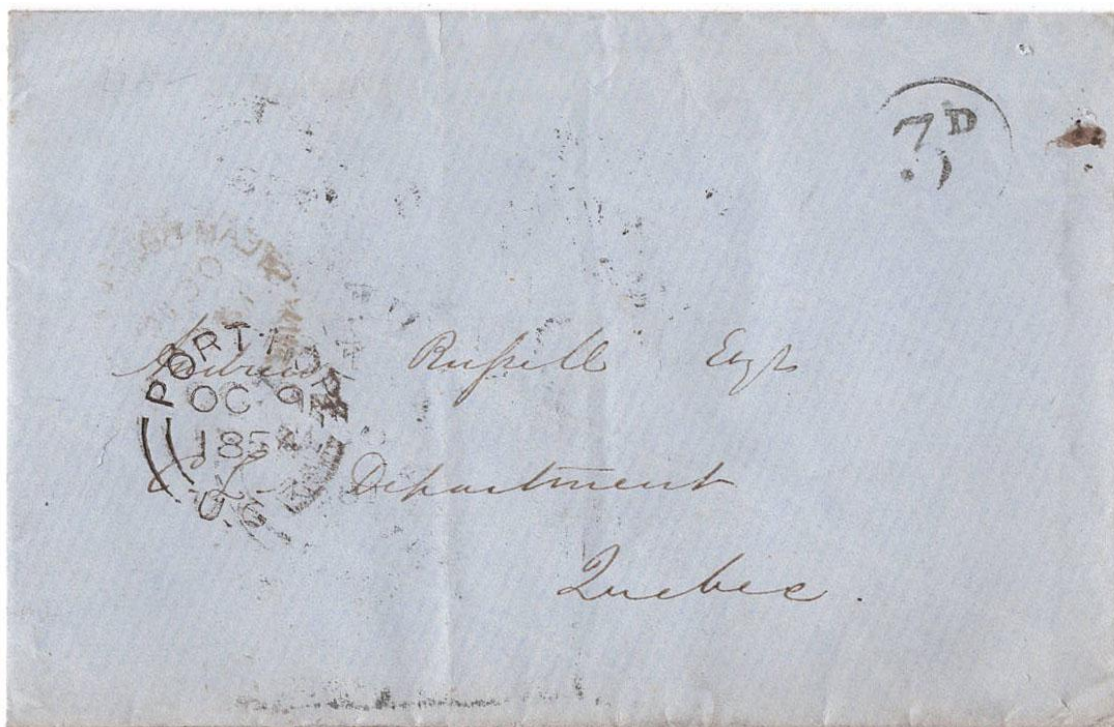 7D
PORT HOPE
OC 9
1854
U.C
Andrew Russell Esqr
C. L. Department
Quebec.